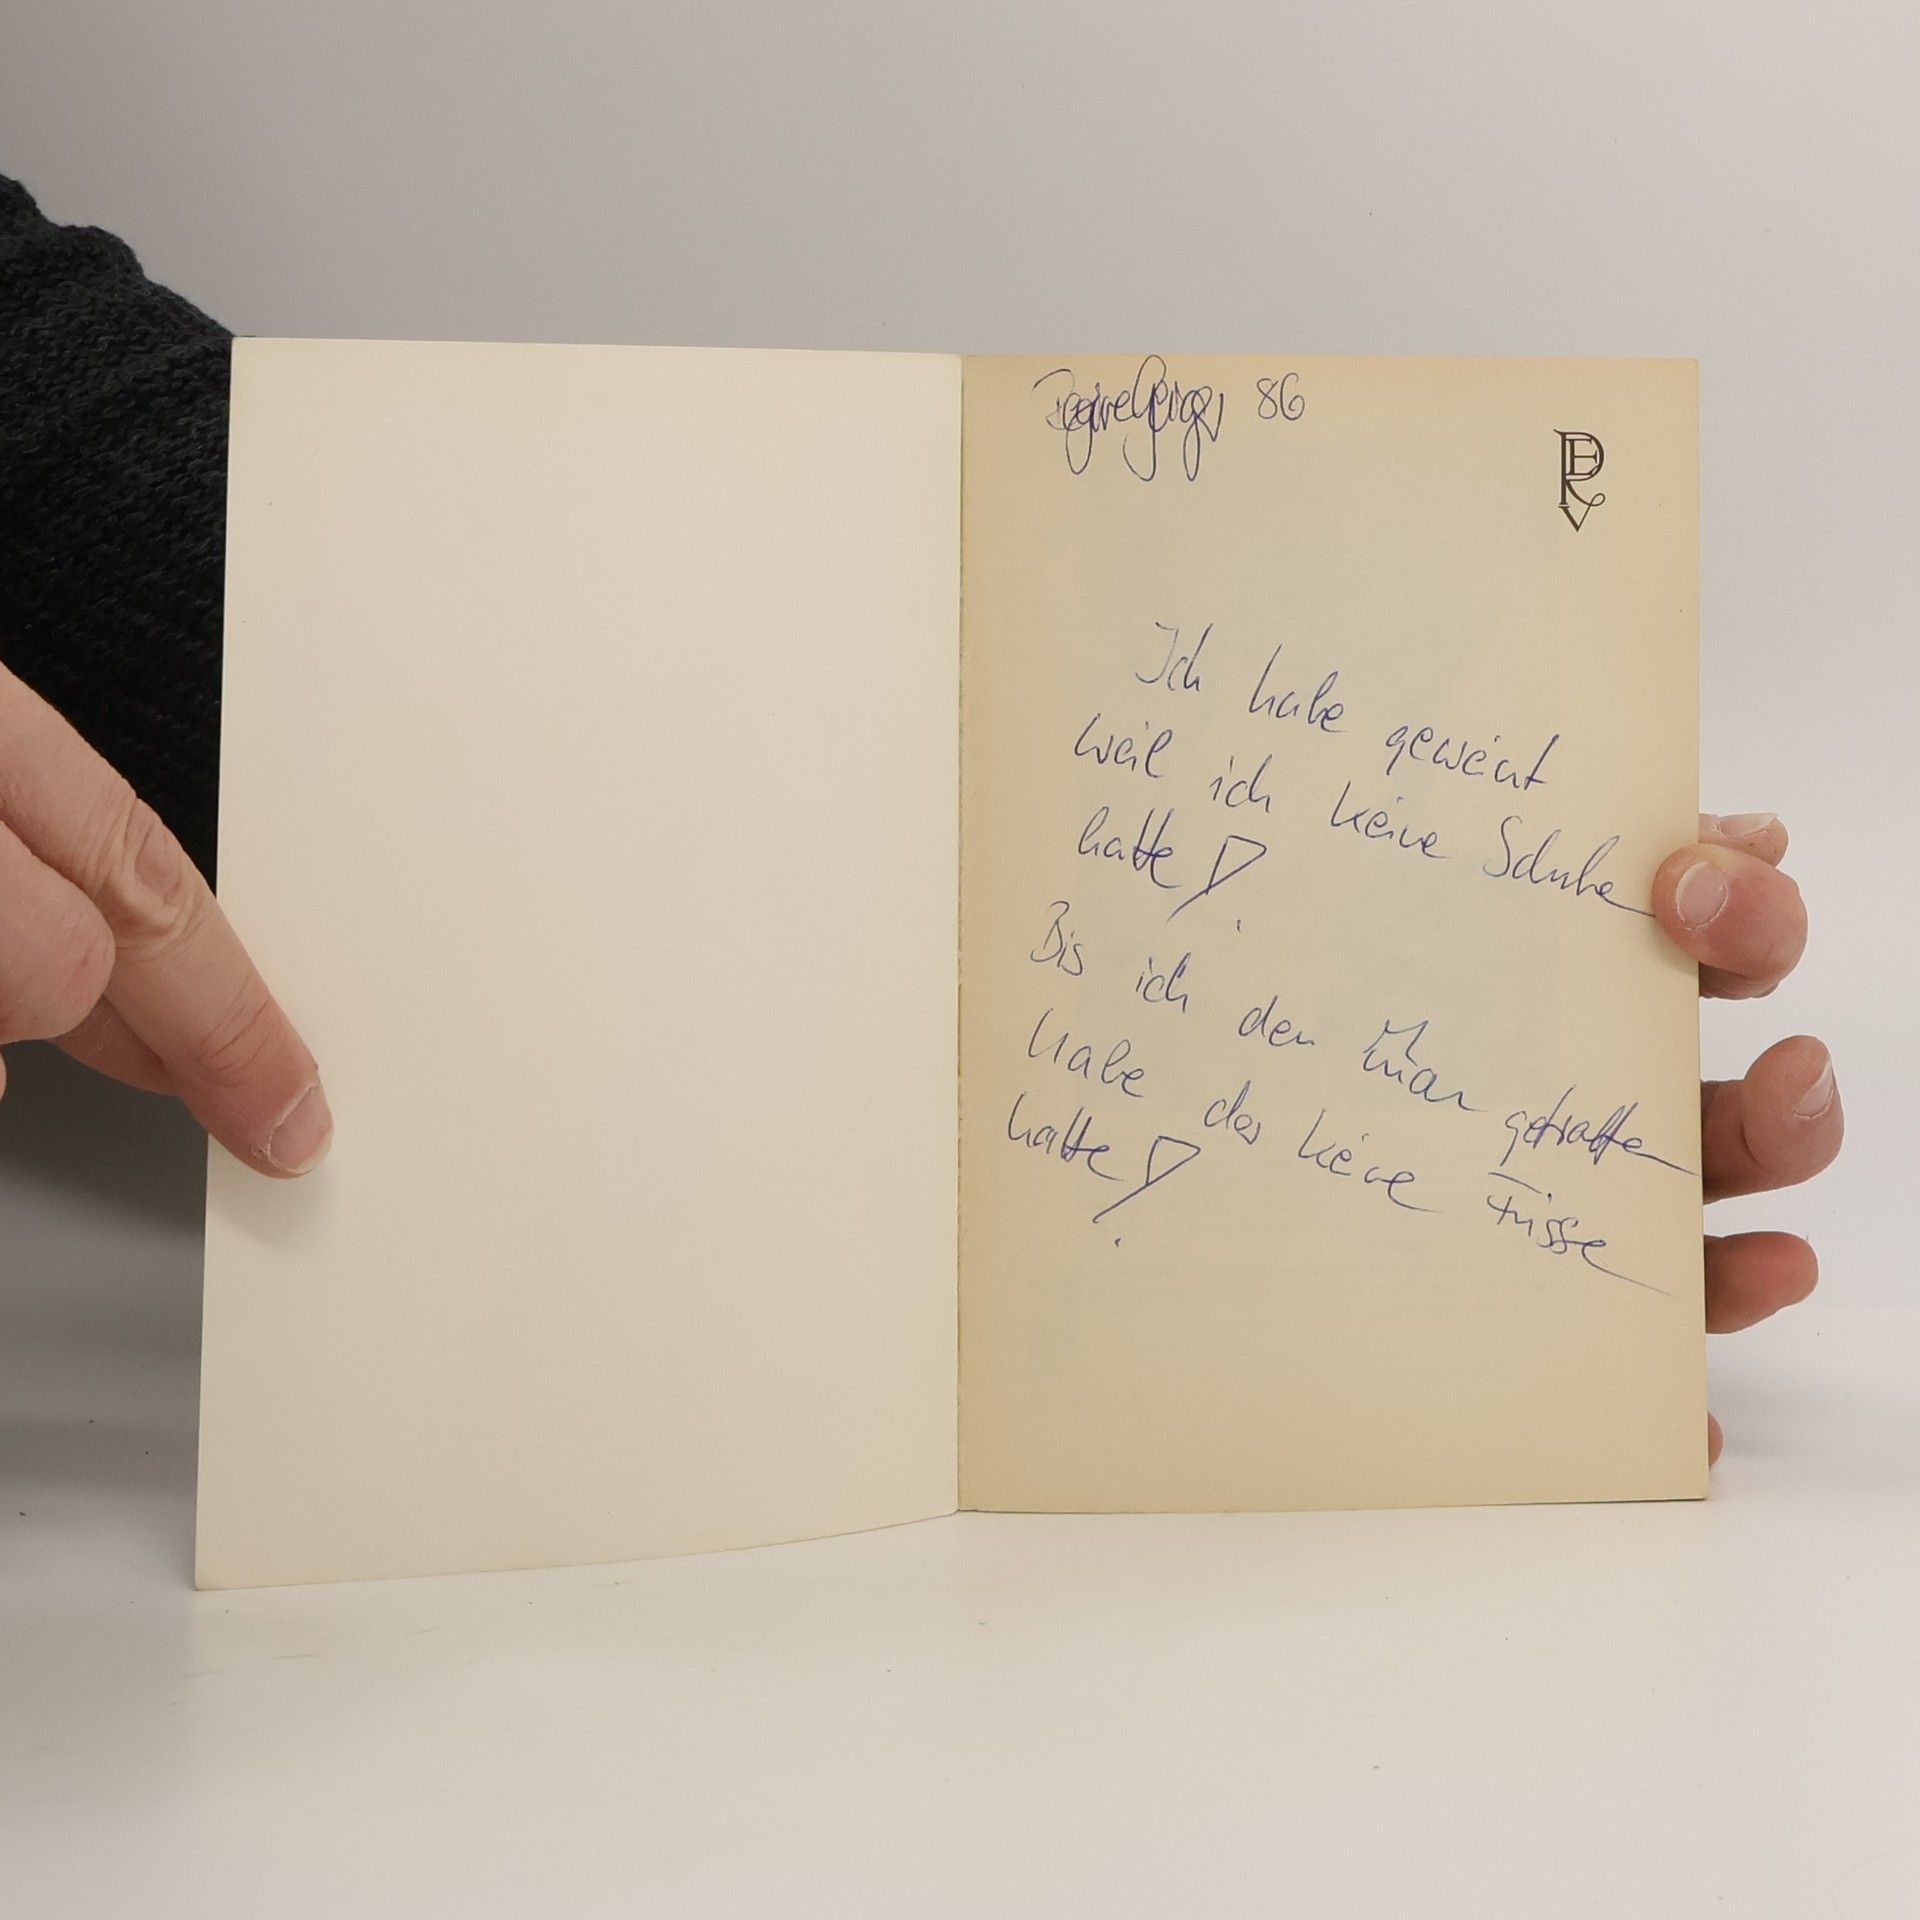 86
Ich habe geweint
weil ich keine Schuhe
hatte!
Bis ich den Man getroffen
habe der keine Füsse
hatte!